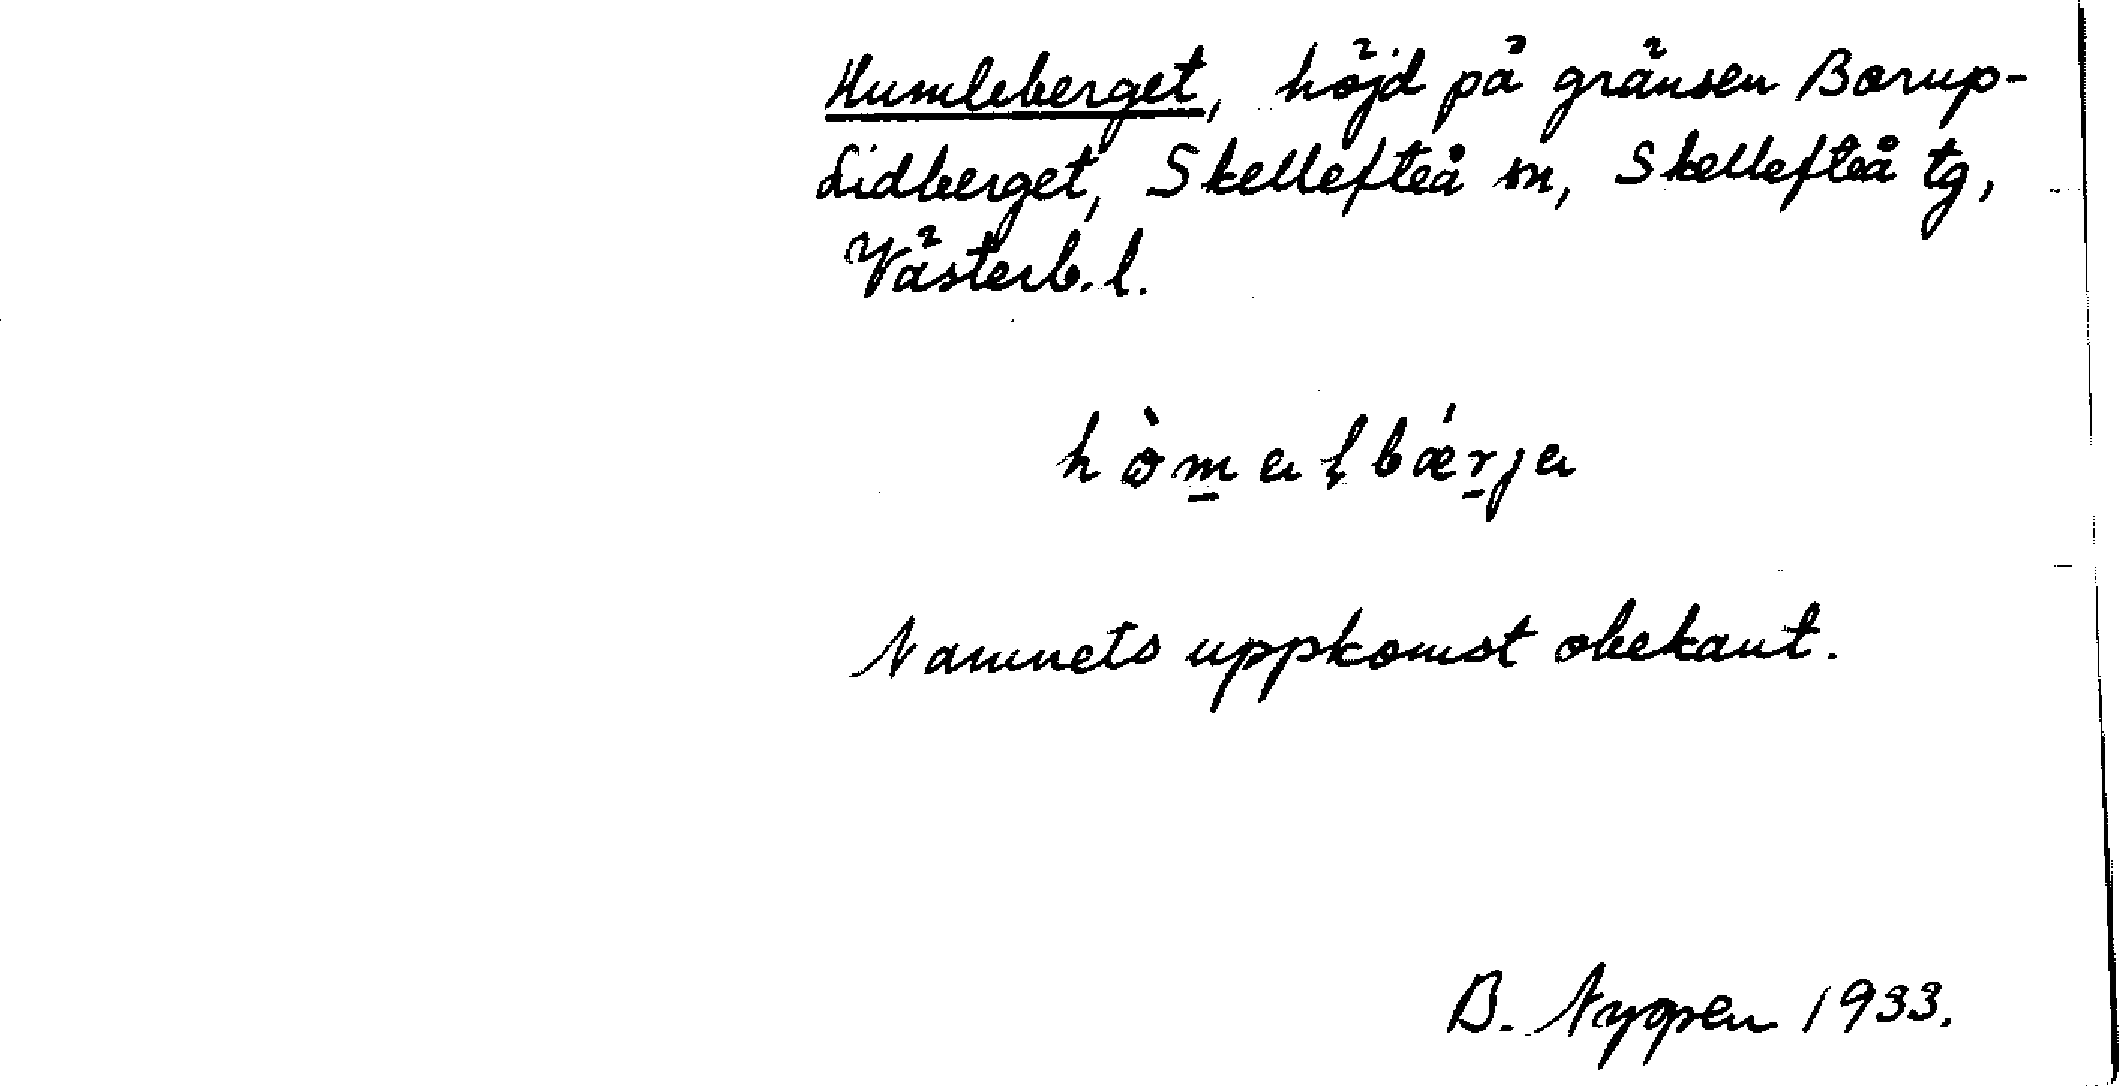 Humleberget, höjd på gränsen Borup-
Lidberget, Skellefteå sn, Skellefteå tg,
Västerb. l.
hòm̠aɭbǽr̠ja
Namnets uppkomst obekant.
B. 1933.